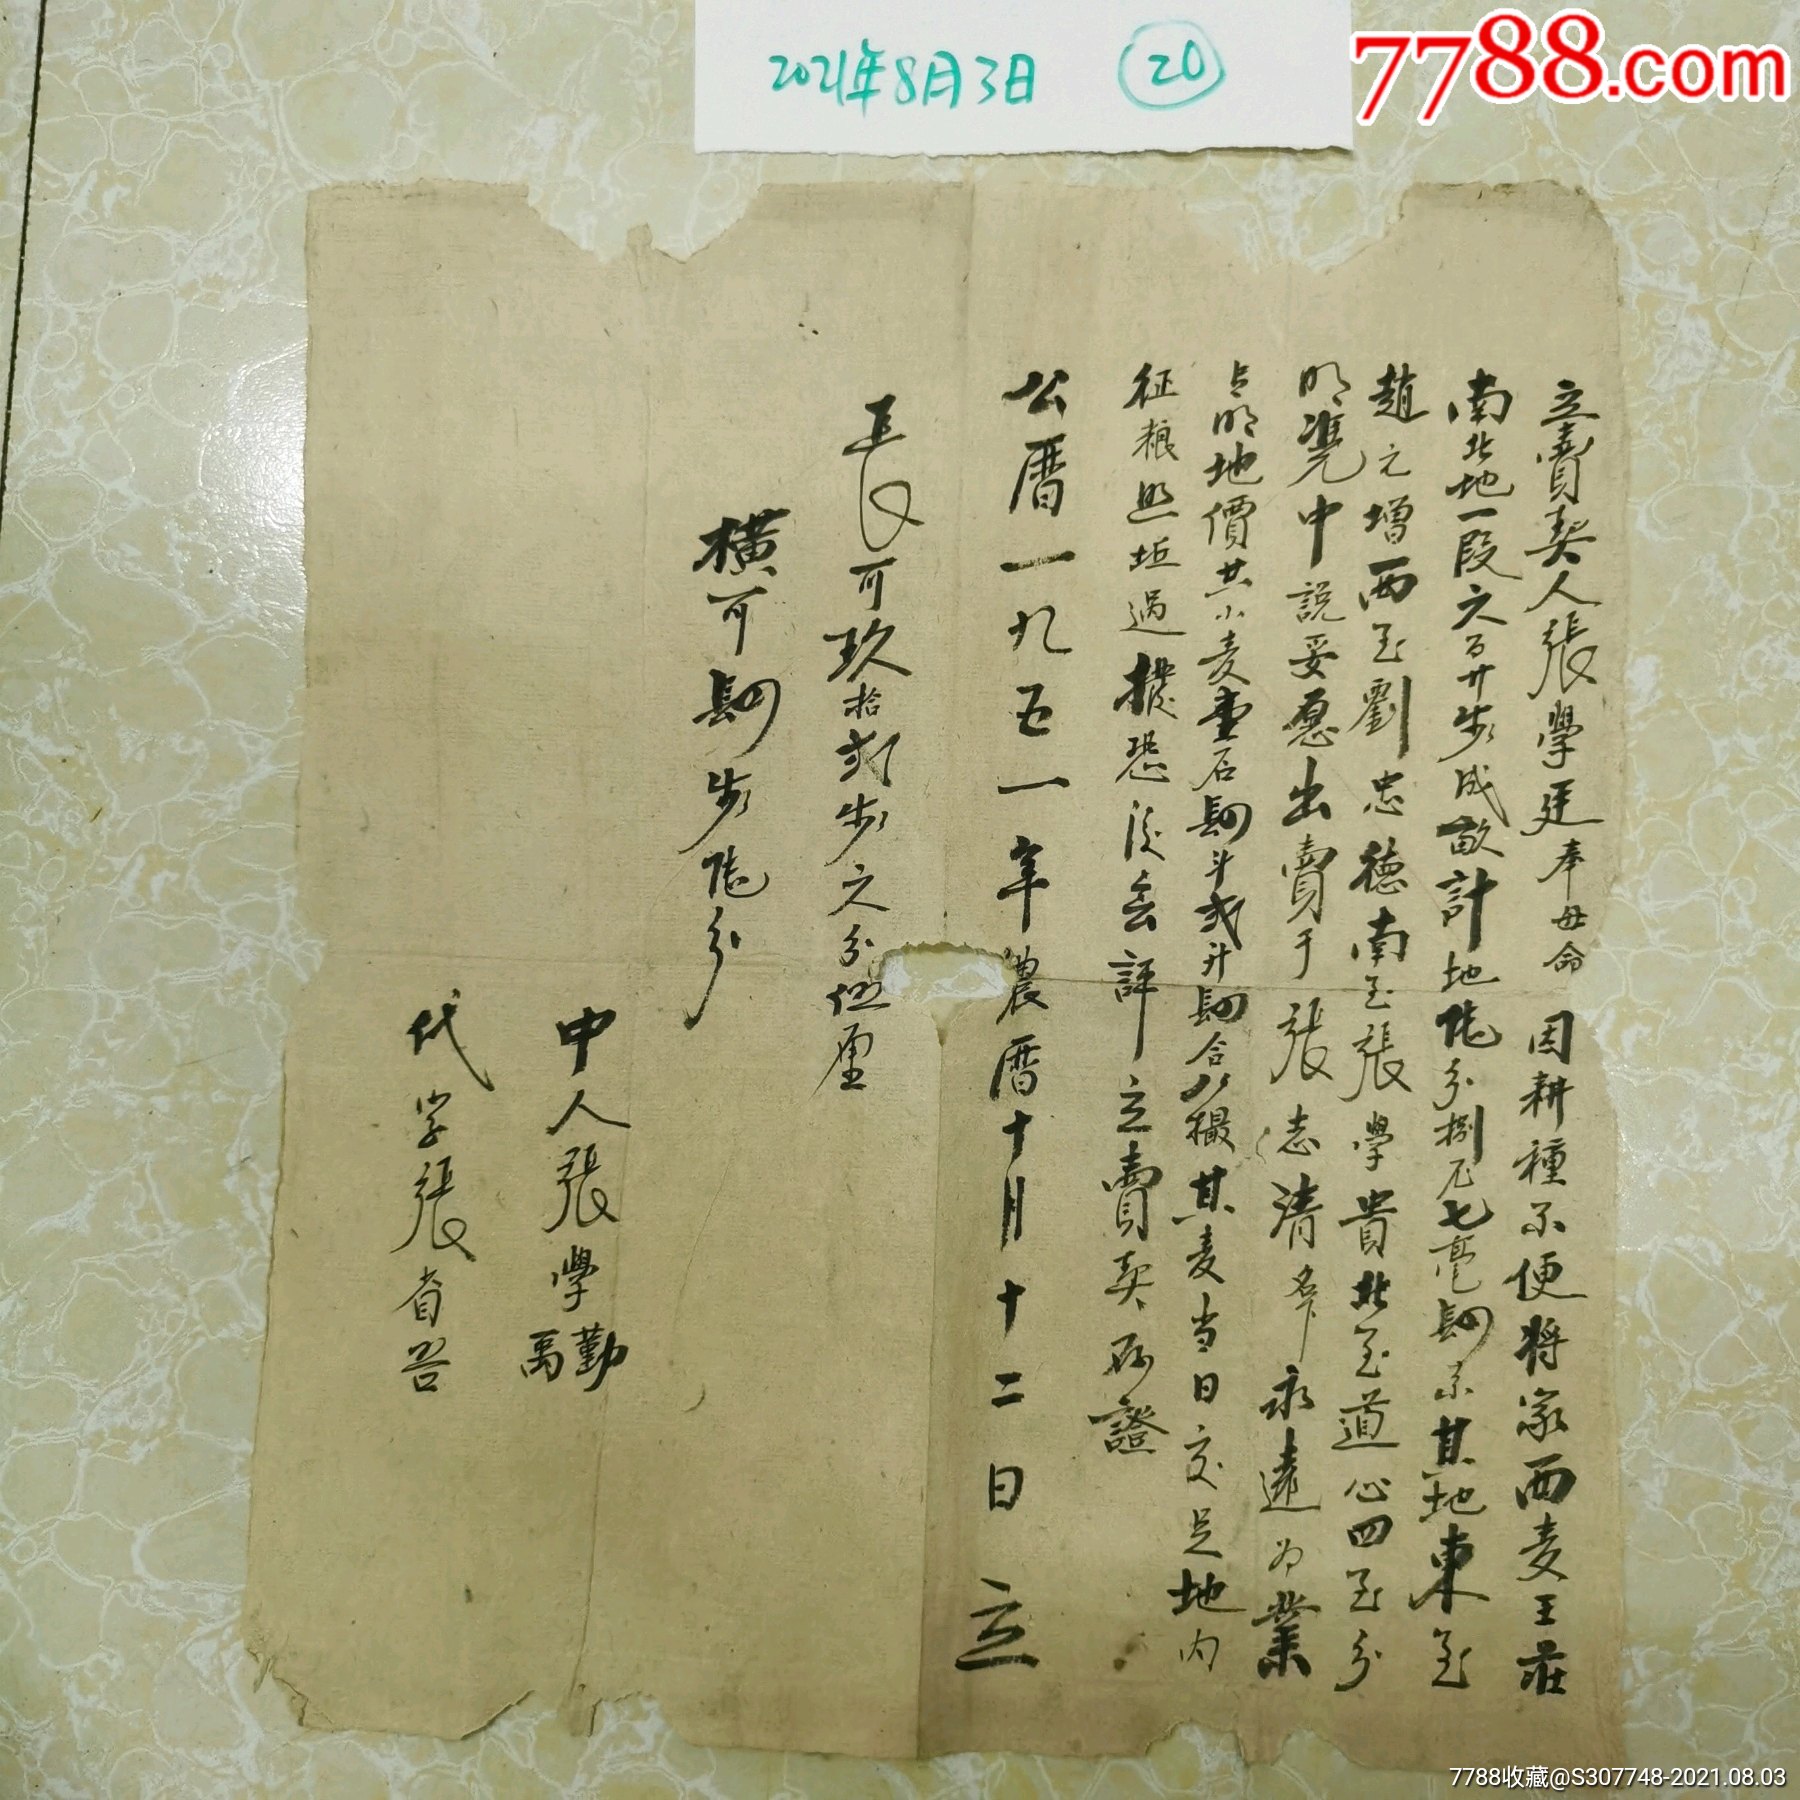 2021年8月3日 20
7788.com
立賣契人張學廷奉母命因耕種不便將家西麦王莊
南北地一段六百廿步成畝計地陸分捌厘七毫四糸其地東至
趙元增西至劉忠德南至張學貴北至道心四至分
明凴中説妥愿出賣于張志清名下永遠为業
言明地價共小麦壹石四斗弍升四合八撮其麦当日交足地内
征粮照垢過撥恐後無評立賣契存證
公曆一九五一年農曆十月十二日立
長可玖拾弍步六分伍厘
橫可四步陸分
中人張學勤
禹
代字張省吾
7788收藏@S307748-2021.08.03